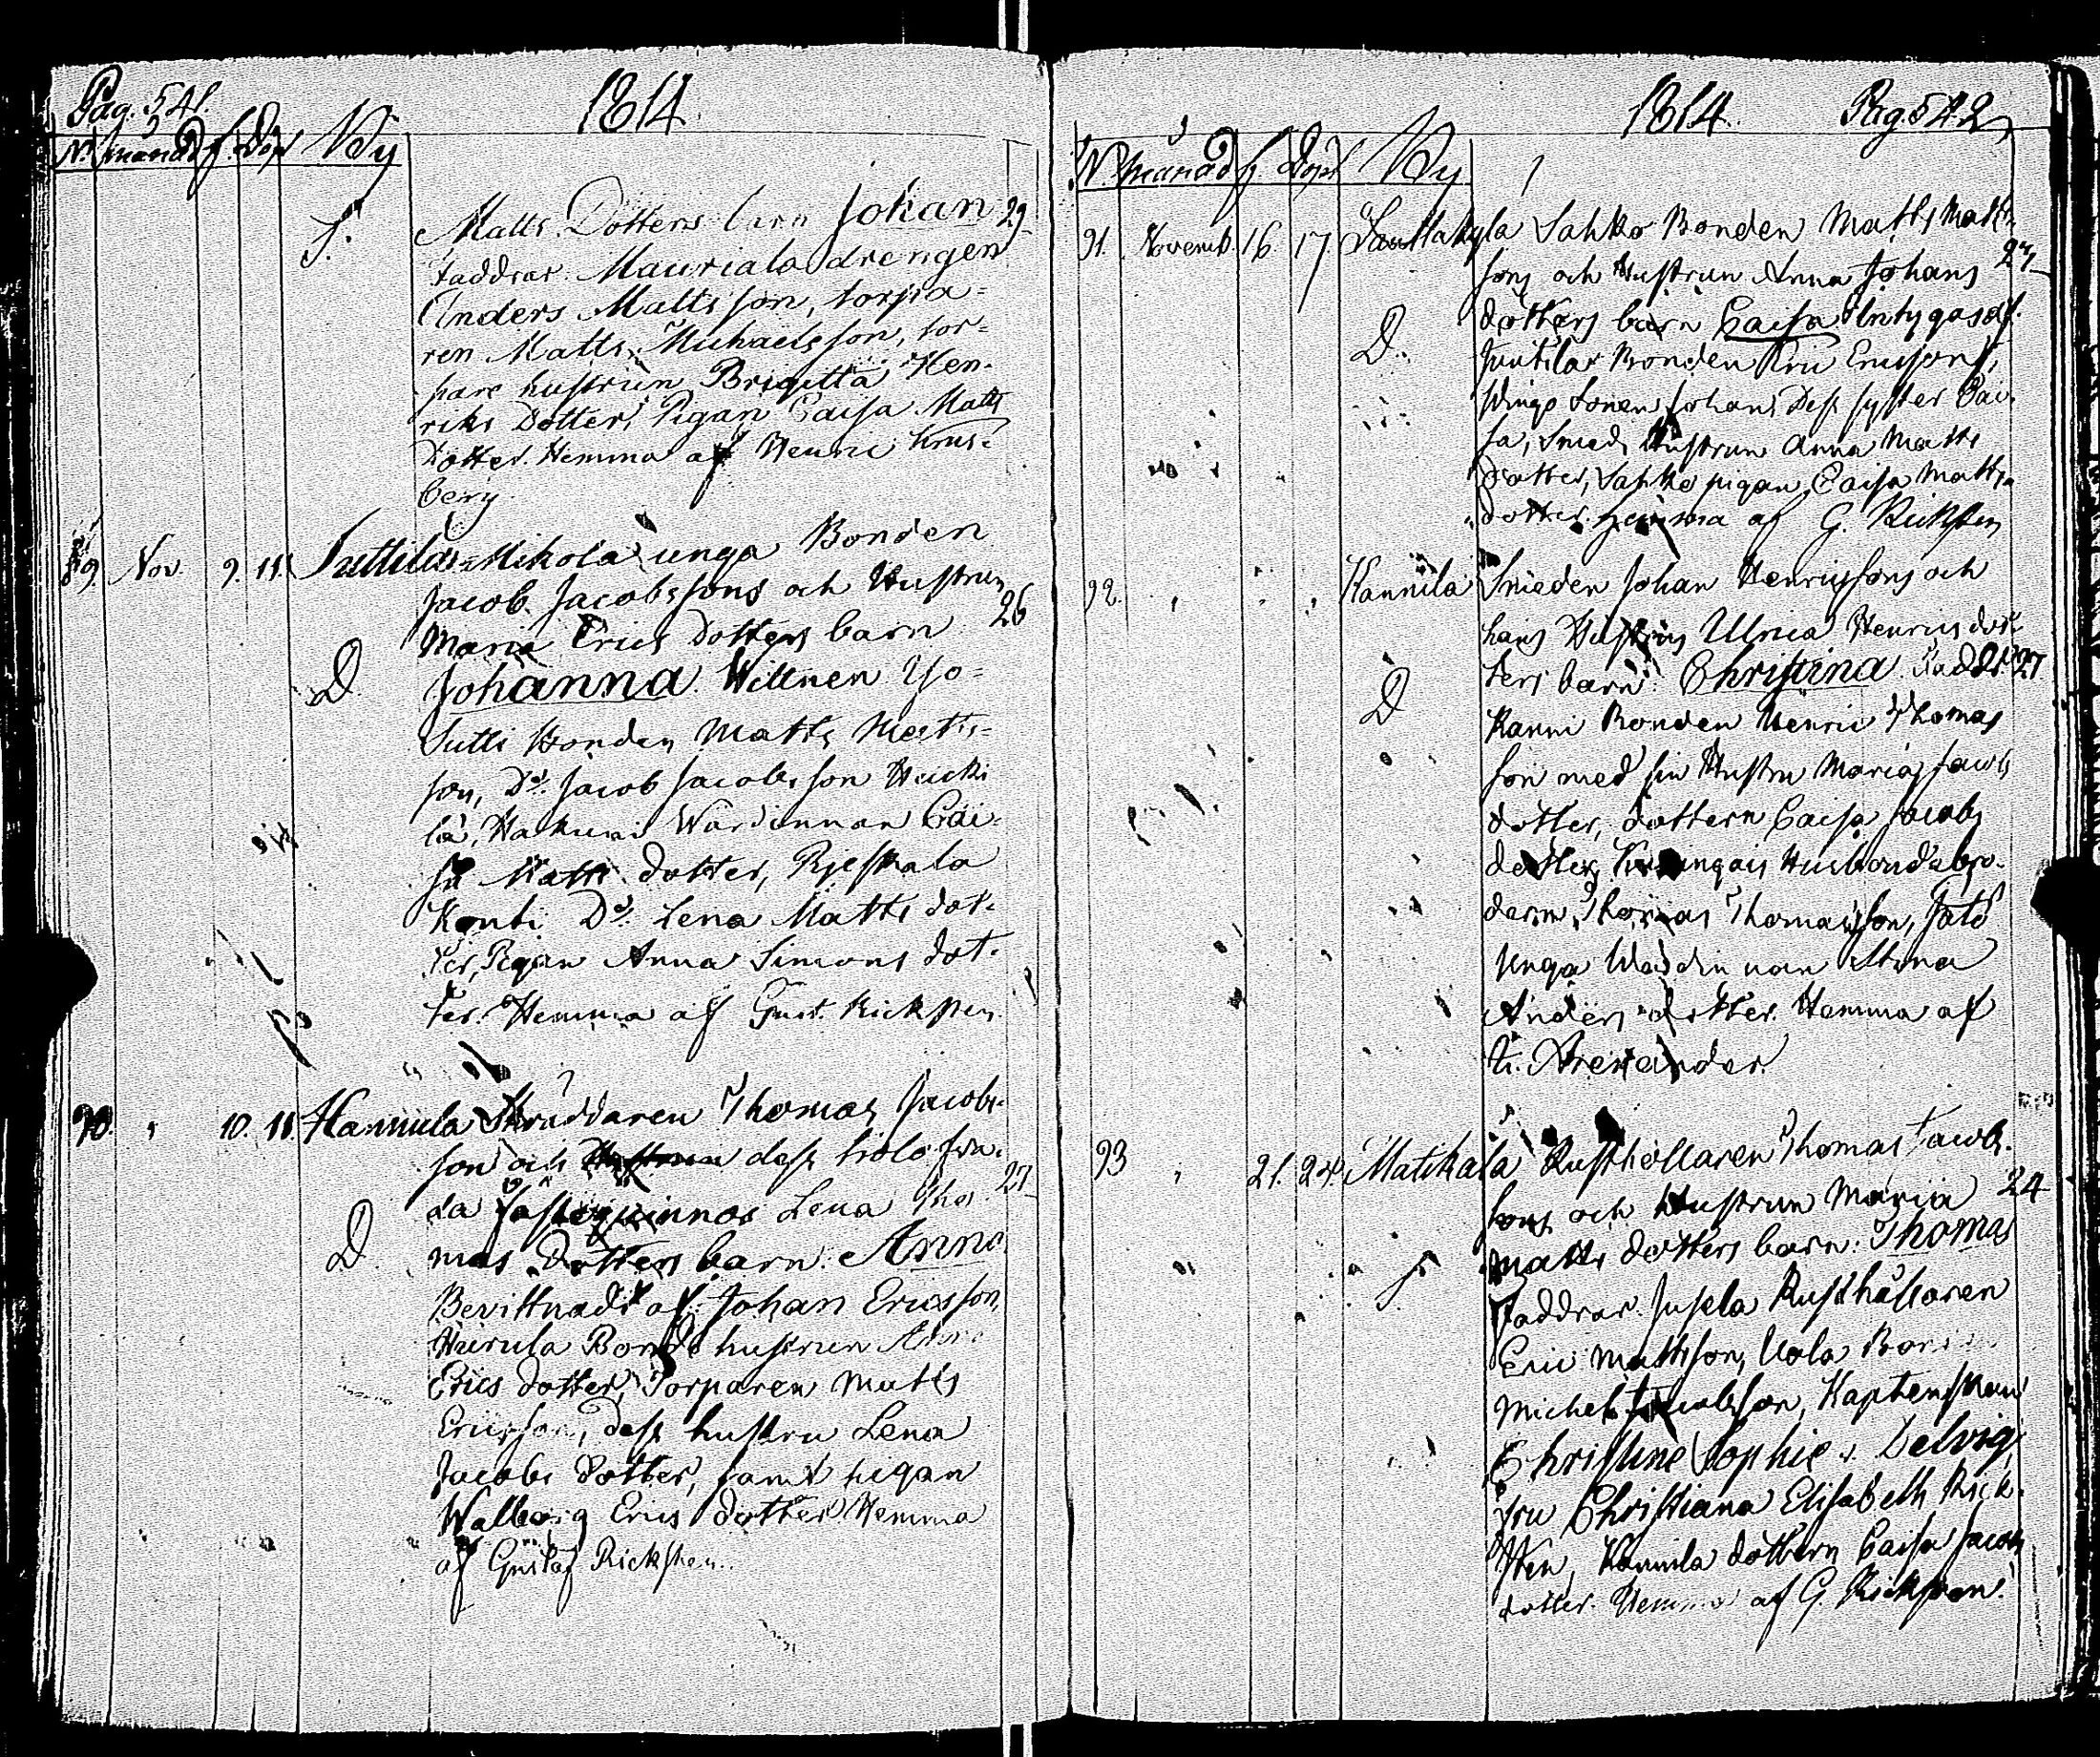 Pag. 541. 1814.
N: månad f. Döpt By
S. Matts Dotters barn Johan 29
Faddrar. Mauriala drengen
Anders Mattsson, torpa-
ren Matts Michaelsson, tor-
pare hustrun Brigitta Hen-
riks Dotter, Pigan Caisa Matts
Dotter. Hemma af Henric Krus-
berg.
89. Nov. 9. 11. Suttila Mikola unga Bonden
Jacob Jacobssons och Hustrun
Maria Erics Dotters barn 26
D. Johanna. Wittnen Yo-
Sutti Bonden Matts Matts-
son, Do. Jacob Jacobsson Heicki
lä, Hakuni Wärdinnan Cai-
sa Matts dotter, Rjeskala
Konti Do. Lena Matts dot-
ter, Pigan Anna Simons dot-
ter. Hemma af Gust. Ricksten.
90. " 10. 11. Hannula Skräddaren Thomas Jacobs-
son och dess trolofva-
da Lena Tho- 27
D. mas Dotters barn. Anna
Bevittnadt af Johan Ericsson,
Bonde hustrun
Erics dotter, Torparen Matts
Ericsson, dess hustru Lena
Jacobs dotter, samt pigan
Walborg Erics dotter Hemma
af Gustaf Ricksten.
1814. Pag 542
N. månad f. Döpt By
91. Novemb. 16. 17. Sauttakyla Sahko Bonden Matts Matts-
sons och Hustrun Anna Johans 27
D. dotters barn Caisa Intygas af
Bonden Ericsson,
Sonen Johan, Dess syster Cai-
sa, Smeds Hustrun Anna Matts
dotter, Sahko pigan Caisa Matts
dotter. Hemma af G. Ricksten
92. " " " Kannila Smeden Johan Henricssons och
hans Hustrus Ulrica Henrics dot-
ters barn: Christina. Faddr. 27
D Kanni Bonden Henric Thomas
son med sin Hustru Maria Jacobs
dotter, dottern Caisa Jacobs
dotter, Husbondabro-
dern Thomas Thomasson,
unga Wärdinnan Stina
Anders dotter. Hemma af
93 " 21. 24. Matikala Rusthollaren Thomas Jacobs-
sons och Hustrun Maria 24
S. Matts dotters barn: Thomas
Faddrar. Rusthållaren
Eric Mattsson, Uola
Michel Jacobsson, Kaptenskan
Christine Sophie v. Delvig,
Fru Christiana Elisabeth Rick-
sten, Kannila dottern Caisa Jacobs
dotter. Hemma af G. Ricksten.